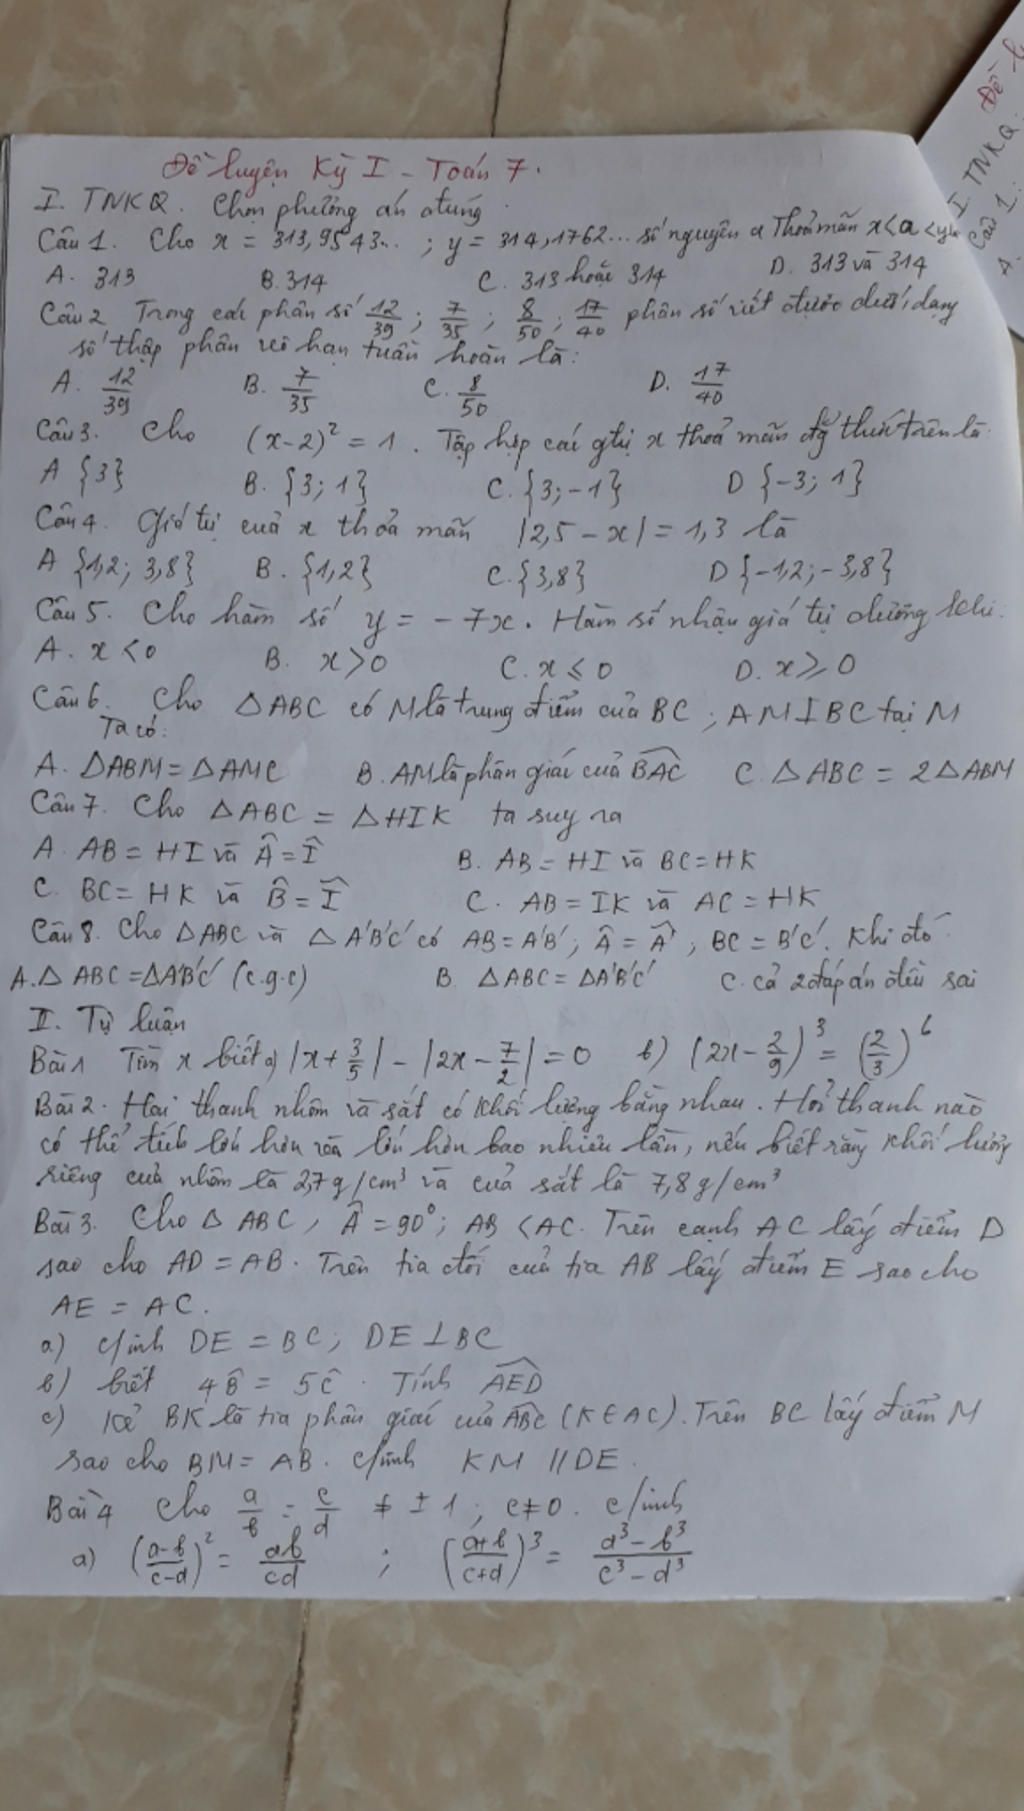 Đề luyện Kỳ I - Toán 7.
I. TNKQ. Chọn phương án đúng.
Câu 1. Cho x = 313,9543... ; y = 314,1762... số nguyên a thoả mãn x<a<y là
A. 313 B. 314 C. 313 hoặc 314 D. 313 và 314
Câu 2 Trong các phân số 12/39 ; 7/35 ; 8/50 ; 17/40 phân số viết được dưới dạng
số thập phân vô hạn tuần hoàn là:
A. 12/39 B. 7/35 C. 8/50 D. 17/40
Câu 3. Cho (x-2)² = 1. Tập hợp các gtrị x thoả mãn đg thức trên là:
A {3} B. {3; 1} C. {3; -1} D {-3; 1}
Câu 4. Giá trị của x thỏa mãn |2,5 - x| = 1,3 là
A {1,2; 3,8} B. {1,2} C. {3,8} D {-1,2; -3,8}
Câu 5. Cho hàm số y = -7x. Hàm số nhận giá trị dương khi:
A. x < 0 B. x > 0 C. x ≤ 0 D. x ≥ 0
Câu 6. Cho △ABC có M là trung điểm của BC ; AM⊥BC tại M
Ta có:
A. △ABM = △AMC B. AM là phân giác của BAC C. △ABC = 2△ABM
Câu 7. Cho △ABC = △HIK ta suy ra
A. AB = HI và Â = Î B. AB = HI và BC = HK
C. BC = HK và B̂ = Î C. AB = IK và AC = HK
Câu 8. Cho △ABC và △A'B'C' có AB = A'B'; Â = Â' ; BC = B'C'. Khi đó
A. △ABC = △A'B'C' (c.g.c) B. △ABC = △A'B'C' C. cả 2 đáp án đều sai
II. Tự luận
Bài 1 Tìm x biết a) |x + 3/5| - |2x - 7/2| = 0 b) (2x - 2/9)³ = (2/3)⁶
Bài 2. Hai thanh nhôm và sắt có khối lượng bằng nhau. Hỏi thanh nào
có thể tích lớn hơn và lớn hơn bao nhiêu lần, nếu biết rằng khối lượng
riêng của nhôm là 2,7g/cm³ và của sắt là 7,8g/cm³
Bài 3. Cho △ ABC, Â = 90°; AB < AC. Trên cạnh AC lấy điểm D
sao cho AD = AB. Trên tia đối của tia AB lấy điểm E sao cho
AE = AC.
a) c/minh DE = BC; DE⊥BC
b) biết 4B̂ = 5Ĉ. Tính AED
c) Kẻ BK là tia phân giác của ABC (K∈AC). Trên BC lấy điểm M
sao cho BM = AB. c/minh KM // DE.
Bài 4 Cho a/b = c/d ≠ ±1 ; c≠0. c/minh
a) ((a-b)/(c-d))² = ab/cd ; ((a+b)/(c+d))³ = (a³-b³)/(c³-d³)
Đề
I. TNKQ.
Câu 1:
A.